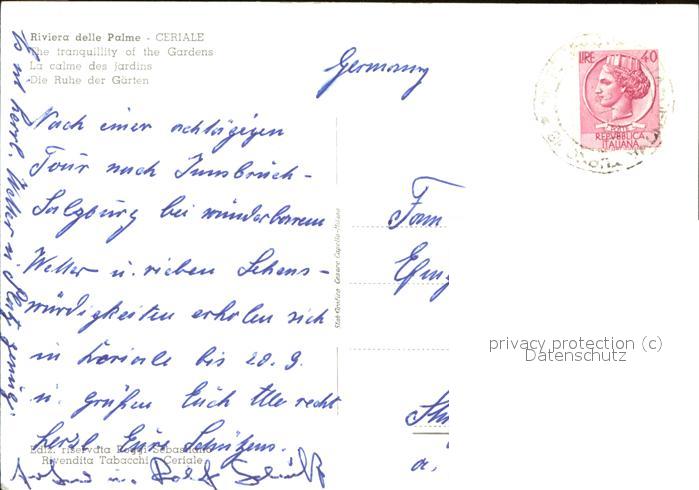 Riviera delle Palme - CERIALE
The tranquillity of the Gardens
La calme des jardins
Die Ruhe der Gärten
Germany
LIRE 40
POSTE
REPVBBLICA
ITALIANA
Nach einer achttägigen
Tour nach Innsbruck-
Salzburg bei wunderbarem
Wetter u. vieben Sehens-
würdigkeiten erholen sich
in Ceriale bis 20. 9.
u. grüßen Euch Alle recht
herzl. Eure Schützens.
Ediz. riservata Poggi Sebastiano
Rivendita Tabacchi - Ceriale
u. Rolf
Es ist herrl. Wetter u. Platz genug.
Fam
privacy protection (c)
Datenschutz